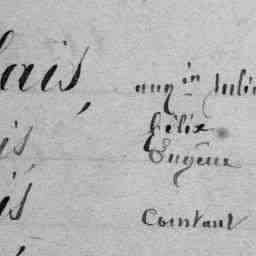 lais, aug in Juli
Félix
is, Eugène
is Constant